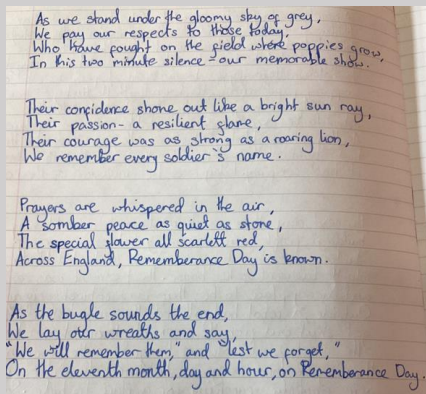 As we stand under the gloomy sky of grey,
We pay our respects to those today,
Who have fought on the field where poppies grow,
In this two minute silence - our memorable show.
Their confidence shone out like a bright sun ray,
Their passion - a resilient flame,
Their courage was as strong as a roaring lion,
We remember every soldier's name.
Prayers are whispered in the air,
A somber peace as quiet as stone,
The special flower all scarlett red,
Across England, Rememberance Day is known.
As the bugle sounds the end,
We lay our wreaths and say,
"We will remember them," and "lest we forget,"
On the eleventh month, day and hour, on Rememberance Day.